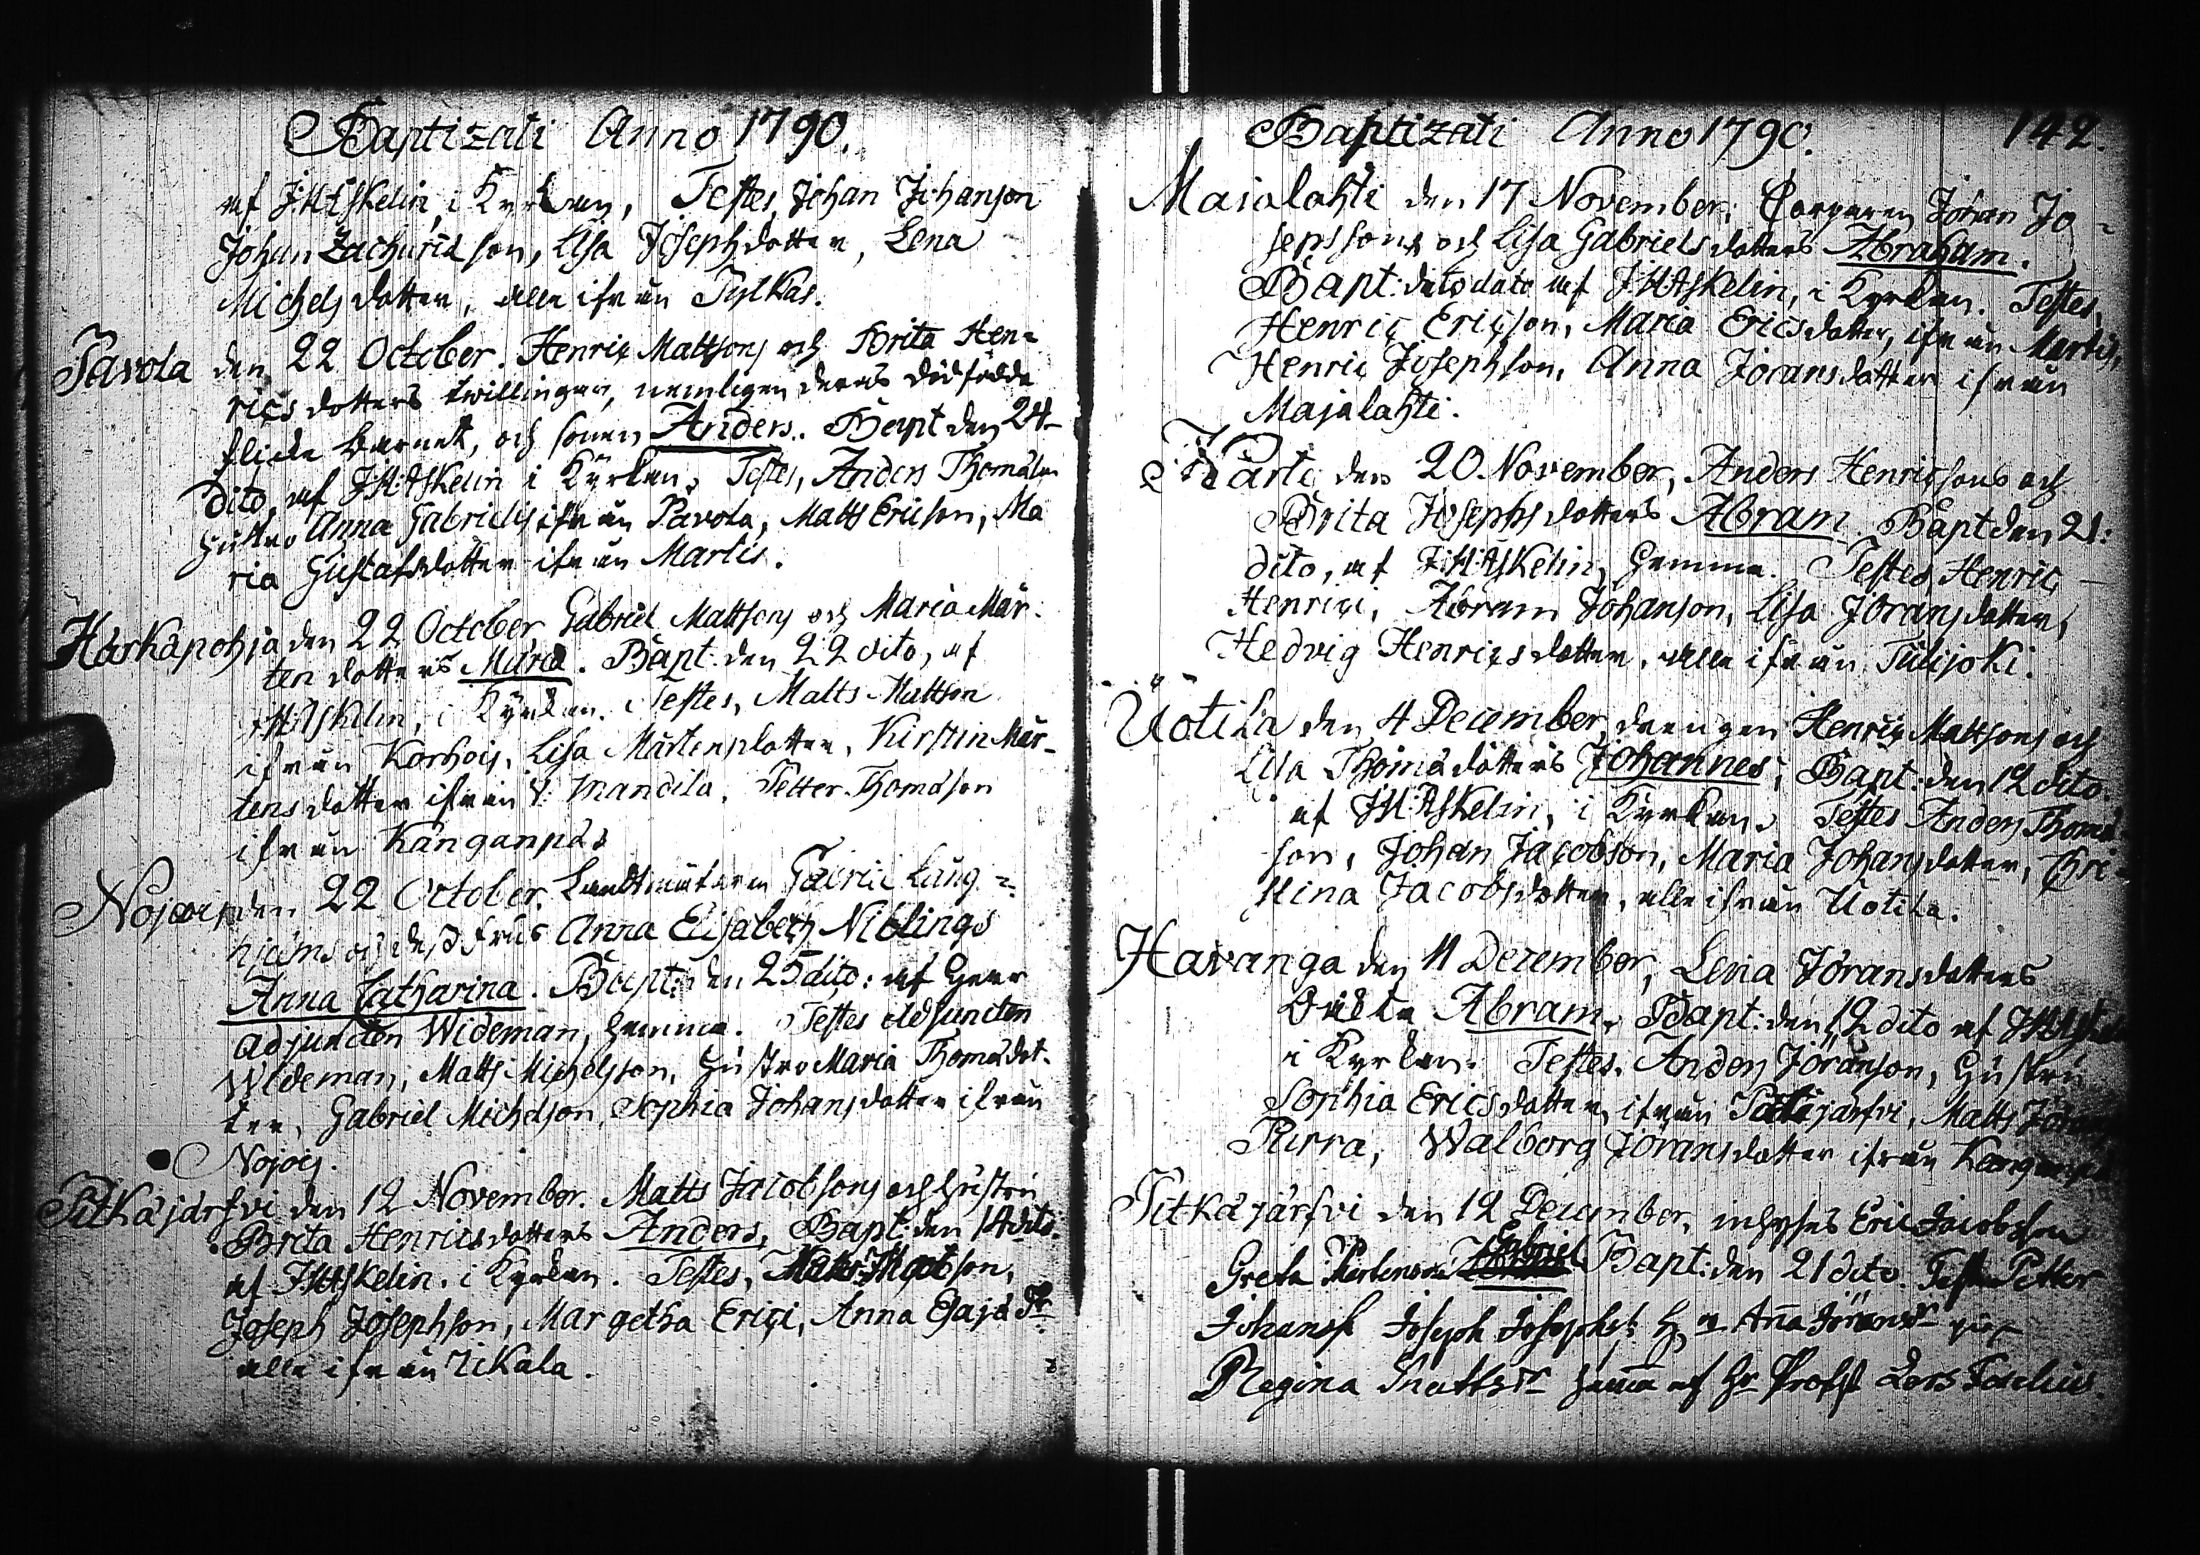 Baptizati Anno 1790.
af J:H:Askelin, i Kyrkan, Testes, Johan Johanson
Johan Zachariæson, Lisa Josephsdotter, Lena
Michelsdotter, alle ifrån Sylkäs.
Pavola den 22 October. Henric Mattsons och Brita Hen=
ricsdotters twillingar, nemligen deras dödfödde
flicke barnet, och sonen Anders. Bapt den 24
dito, af J:H:Askelin i Kyrkan. Testes, Anders Thomason
Hustro Anna Gabriels ifrån Pavola, Matts Ericson, Ma
ria Gustafsdotter ifrån Martis.
Härkäpohja den 22 October Gabriel Mattsons och Maria Mår-
ten dotters Maria. Bapt: den 22 dito, af
J:H:Askelin, i Kyrkan. Testes, Matts Mattson
ifrån Korhois, Lisa Mårtensdotter, Kirstin Mår-
tensdotter ifrån Y: Mandila, Petter Thomason
ifrån Kånganpäs
Nojois den 22 October. Landtmätaren Lång=
hjelms och dess frus Anna Elisabeth Niblings
Anna Catharina. Bapt: den 25 dito: af Herr
adjuncten Wideman, hemma. Testes adjuncten
Wideman, Matts Michelsson, Hustro Maria Thomædot-
ter, Gabriel Michelson, Sophia Johansdotter ifrån
Nojois.
Pitkäjärfvi den 12 November. Matts Jacobsons och hustru
Brita Henricsdotters Anders, Bapt: den 14 dito.
af J:H:Askelin. i Kyrkan. Testes, Matts
Joseph Josephson, Margetha Erici, Anna Esajædr
alle ifrån Ickala.
Baptizati Anno 1790. 142.
Majalahti den 17 November. Corporen Johan Jo=
sepssons och Lisa Gabrielsdotters Abraham.
Bapt: dito dato af J:H:Askelin, i Kyrkan. Testes,
Henric Ericson, Maria Ericsdotter, ifrån Martis,
Henric Josephson, Anna Joransdotter ifrån
Majalahti.
den 20 November, Anders Henricsons och
Brita Josephsdotters Abram. Bapt den 21:
dito, af J:H:Askelin, hemma. Testes Henric
Henrici, Abram Johanson, Lisa Joransdotter,
Hedvig Henricsdotter, alle ifrån Tulijoki.
Uotila den 4 December, drengen Henric Mattsons och
Lisa Thomædotters Johannes, Bapt: den 12 dito.
af J:H:Askelin, i Kyrkan. Testes Anders Thomæ
son, Johan Jacobson, Maria Johansdotter, Chri-
stina Jacobsdotter, alle ifrån Uotila.
Havanga den 11 December, Lena Joransdotters
oäkta Abram. Bapt: den 12 dito af J:H:Askelin
i Kyrkan. Testes, Anders Joranson, Hustru
Sophia Ericsdotter, ifrån Pitkäjärfvi, Matts
Purra, Walborg Joransdotter ifrån
Pitkäjärfvi den 12 December, inhyses Eric Jacobson
Greta Mårtens Gabriel Bapt: den 21 dito. Testes Petter
Johans. Joseph Josephs. H. Anna Jöransdr
Regina Mattsdr hemma af Hr Probst Lars